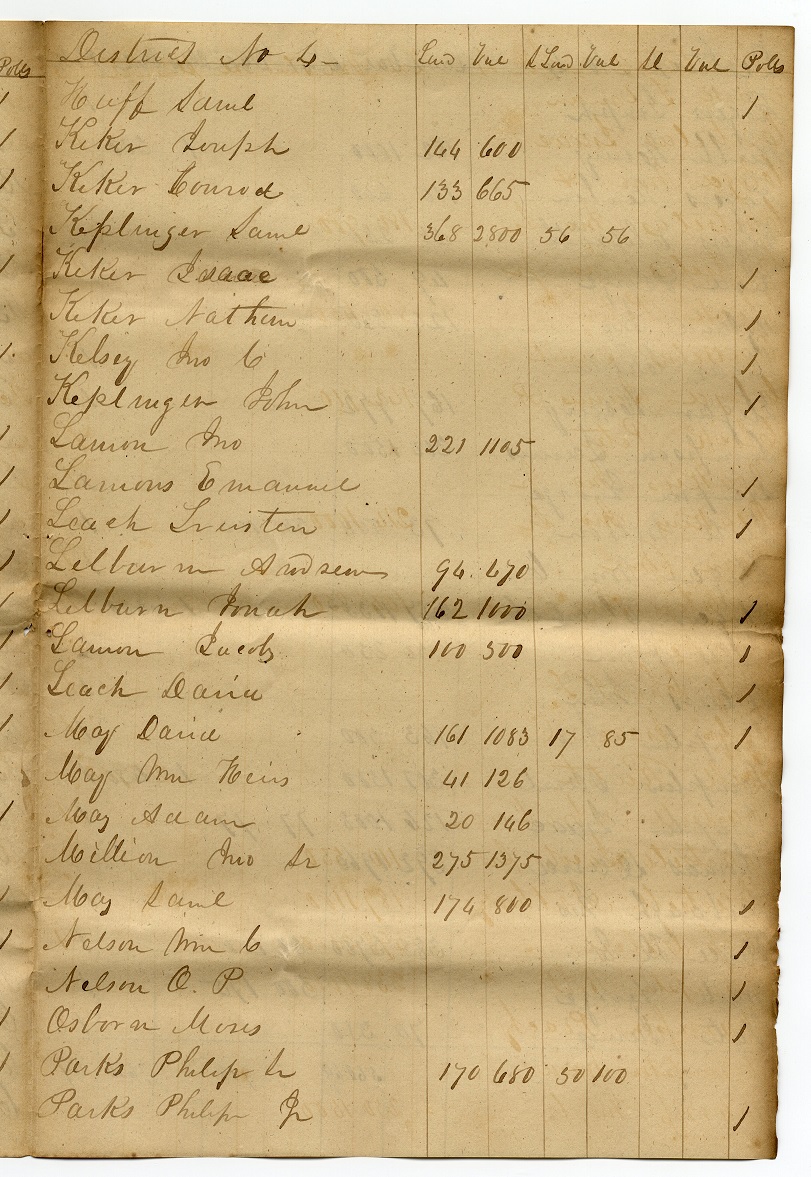 Polls District No 4 Land Val S Land Val Sl Val Polls
Huff Saml 1
Keker Joseph 144 600
Keker Conrod 133 665
Keplinger Saml 368 2800 56 56
Keker Isaac 1
Keker Nathan 1
Kelsey Jno C 1
Keplinger John 1
Lamon Jno 221 1105
Lamons Emanuel 1
Leach 1
Lilburn Andrew 94 470 1
Lilburn Jonah 162 1000 1
Lamon Jacob 100 500 1
Leach David 1
May David 161 1083 17 85 1
May Wm Heirs 41 126
May Adam 20 146
Million Jno Sr 275 1375
May Saml 174 800 1
Nelson Wm C 1
Nelson O. P 1
Osborn Moses 1
Parks Philip Sr 170 680 50 100
Parks Philip Jr 1